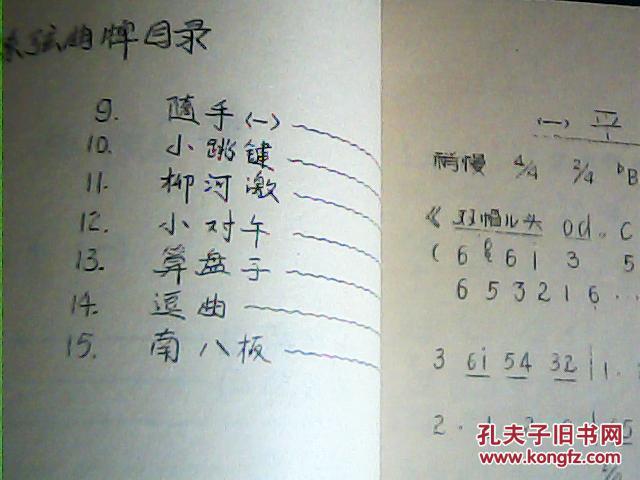 弦曲牌目录
9. 随手(一)
10. 小跳键
11. 柳河激
12. 小对午
13. 算盘子
14. 逗曲
15. 南八板
(一)
稍慢 4/4 2/4 bB
《双帽儿头 od. C
( 6 6 1 3 5
6 5 3 2 1 6 . .
3 6i 54 32 | 1.
2 .
孔夫子旧书网
www.kongfz.com